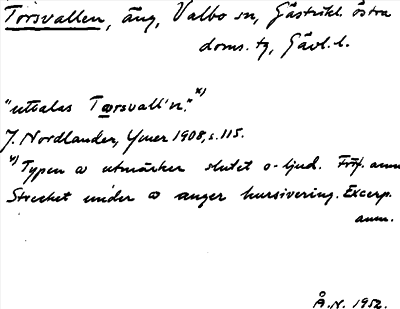 Torsvallen, äng, Valbo sn, Gästrikl. östra
doms. tg, Gävl. l.
"uttalas Tꞷrsvall'n." x)
J. Nordlander, Ymer 1908, s. 115.
x) Typen ꞷ utmärker slutet o-ljud. Förf. anm.
Strecket under ꞷ anger kursivering. Excerp.
anm.
Å.N. 1952.